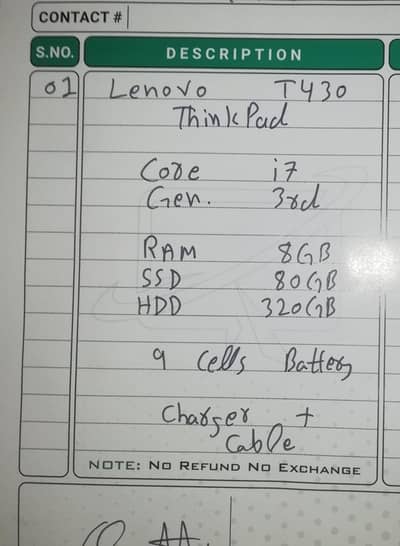 CONTACT #
S.NO. DESCRIPTION
01 Lenovo T430
ThinkPad
Core i7
Gen. 3rd
RAM 8GB
SSD 80GB
HDD 320GB
9 Cells Battery
Charger +
Cable
NOTE: NO REFUND NO EXCHANGE